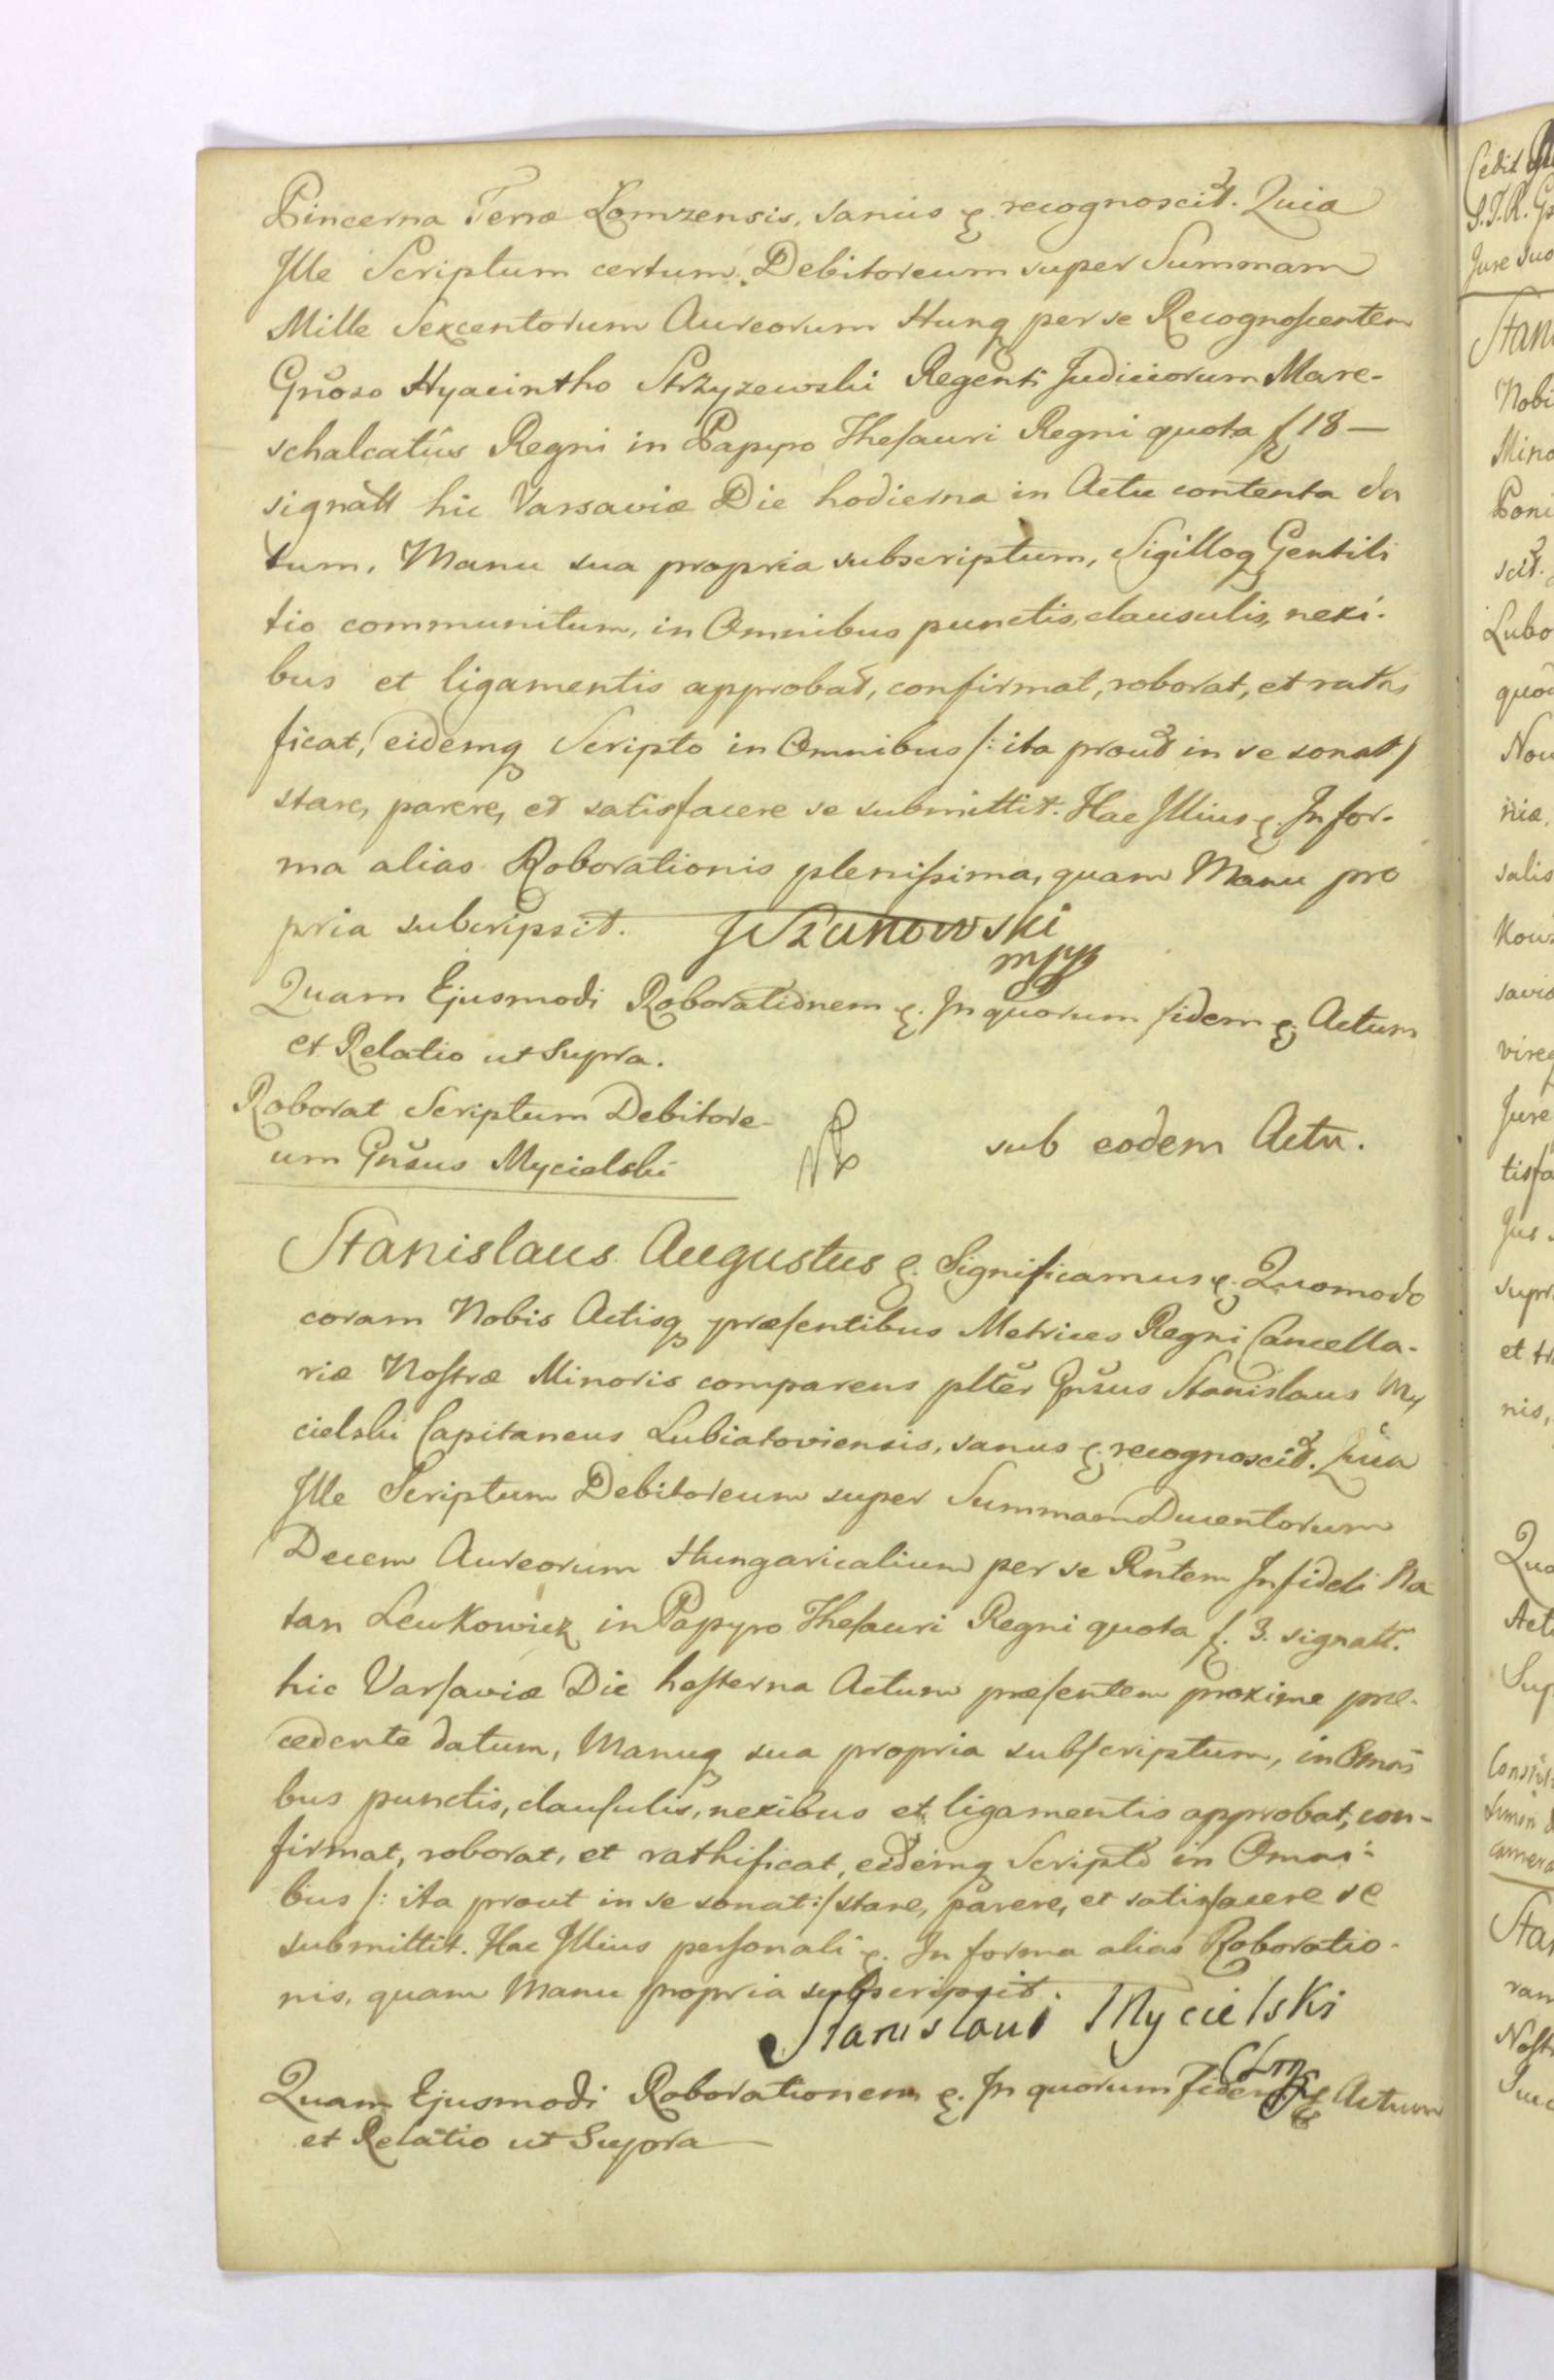 Pincerna Terræ Lomzensis, sanus &. recognoscit. Quia
Ille Scriptum certum Debitoreum super Summam
Mille Sexcentorum Aureorum Hung per se Recognoscentem
Gñoso Hyacintho Strzyzewski Regenti Judiciorum Mare-
schalcatûs Regni in Papyro Thesauri Regni quota f 18 —
signatt hic Varsaviæ Die hodierna in Actu contenta da
tum, Manu sua propria subscriptum, Sigilloq Gentili
tio communitum, in Omnibus punctis, clausulis, nexi-
bus et ligamentis approbat, confirmat, roborat, et rathi
ficat, eidemq Scripto in Omnibus /: ita prout in se sonat /
stare, parere, et satisfacere se submittit. Hac Illius &. In for-
ma alias Roborationis plenissima, quam Manu pro
pria subcripsit. JSzunowski
mpp
Quam Ejusmodi Roborationem &. In quorum fidem &. Actum
et Relatio ut Supra.
Roborat Scriptum Debitore-
um Gñsus Mycielski
sub eodem Actu.
Stanislaus Augustus &. Significamus &. Quomodo
coram Nobis Actisq præsentibus Metrices Regni Cancella-
riæ Nostræ Minoris comparens pltẽr Gñsus Stanislaus My
cielski Capitaneus Lubiatoviensis, sanus &. recognoscit. Quia
Ille Scriptum Debitoreum super Summam Ducentorum
Decem Aureorum Hungaricalium per se Rñtem Infideli Na
tan Lewkowicz in Papyro Thesauri Regni quota f. 3. signatt.
hic Varsaviæ Die hesterna Actum præsentem proxime præ-
cedente datum, Manuq sua propria subscriptum, in Omni
bus punctis, clausulis, nexibus et ligamentis approbat, con-
firmat, roborat, et rathificat, eidemq Scripto in Omni-
bus /: ita prout in se sonat :/ stare, parere, et satisfacere se
submittit. Hac Illius personali &. In forma alias Roboratio-
nis, quam Manu propria subscripsit.
Stanislaus Mycielski
Quam Ejusmodi Roborationem &. In quorum fidem & Actum
et Relatio ut Supra